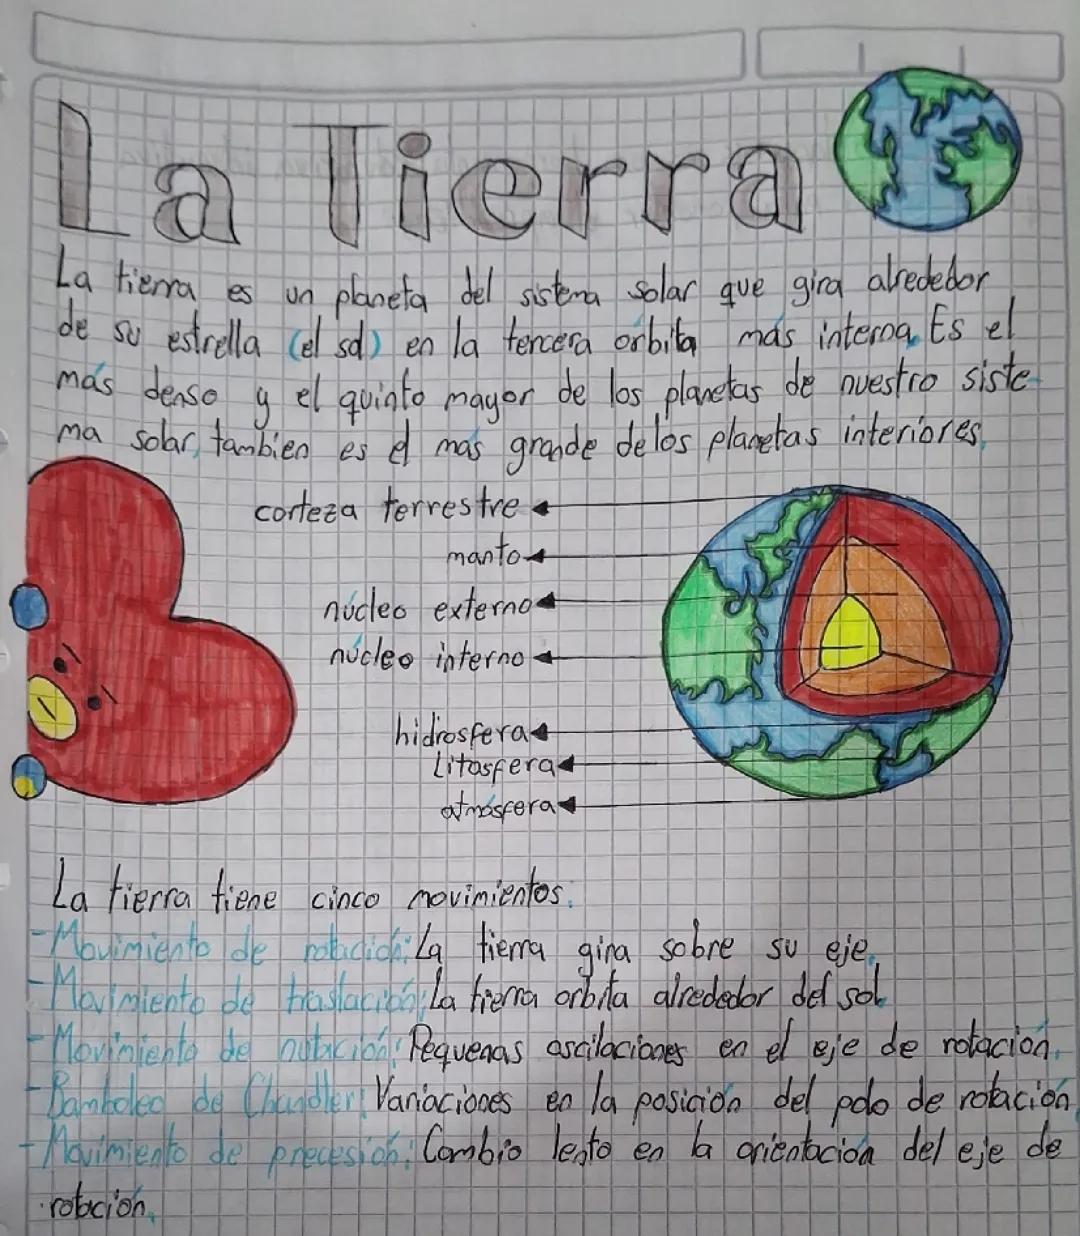 La Tierra
La tierra es un planeta del sistema solar que gira alrededor
de su estrella (el sol) en la tercera órbita más interna. Es el
más denso y el quinto mayor de los planetas de nuestro siste-
ma solar, tambien es el más grande de los planetas interiores.
corteza terrestre
manto
núcleo externo
núcleo interno
hidrosfera
Litosfera
atmósfera
La tierra tiene cinco movimientos:
-Movimiento de rotación: La tierra gira sobre su eje.
-Movimiento de traslación: La tierra orbita alrededor del sol.
-Movimiento de nutación: Pequenas oscilaciones en el eje de rotación.
-Bamboleo de Chandler: Variaciones en la posición del polo de rotación
-Movimiento de precesión: Cambio lento en la orientación del eje de
rotación.